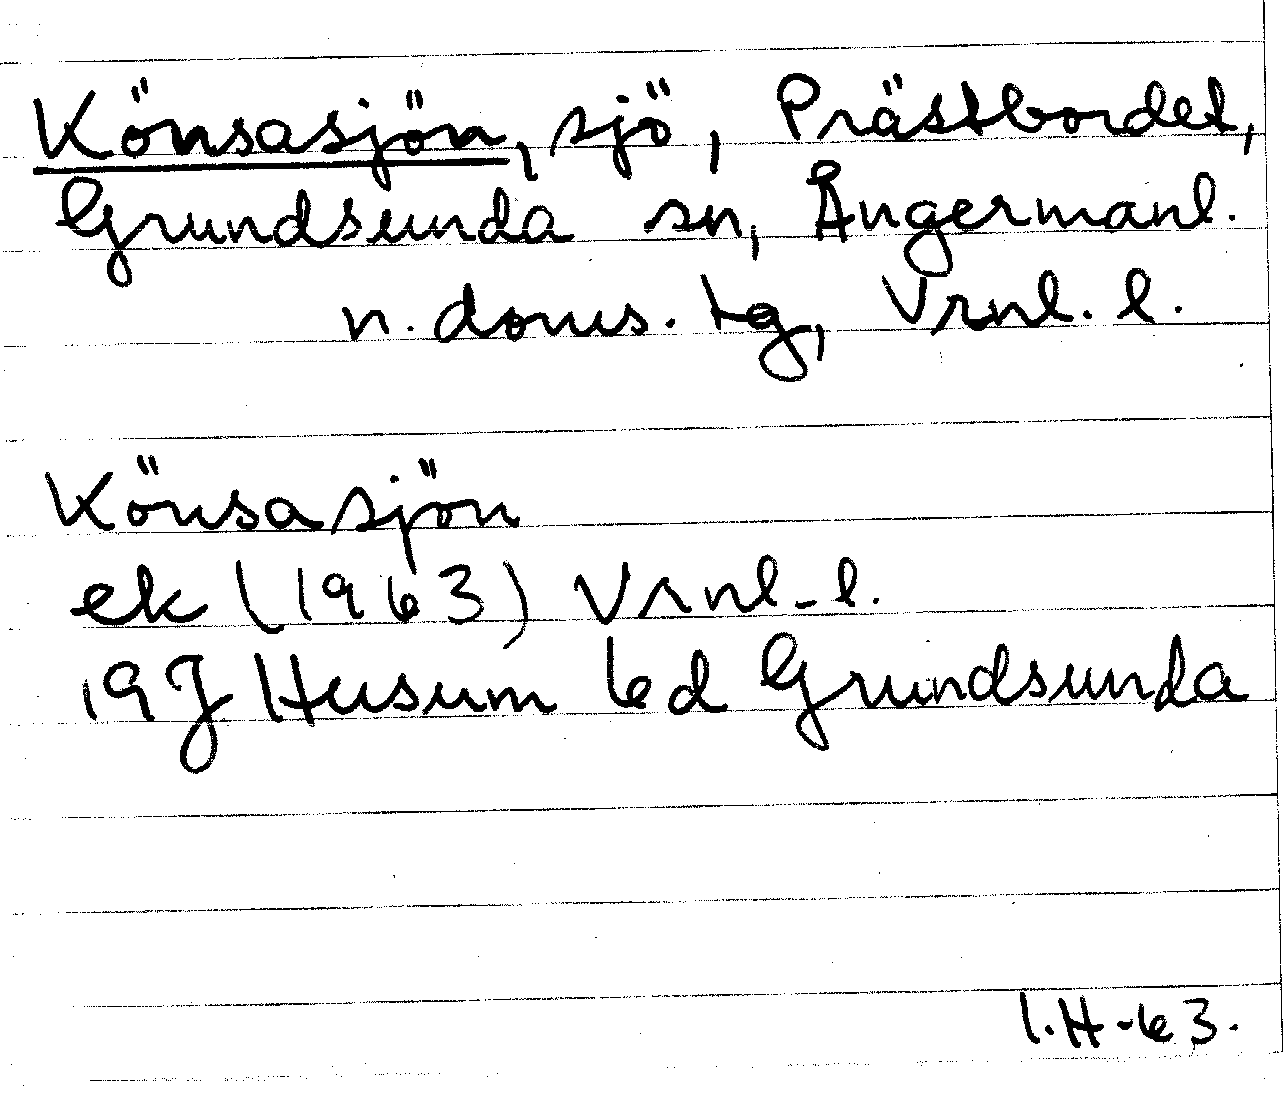 Könsasjön, sjö, Prästbordet,
Grundsunda sn, Ångermanl.
n. doms. tg, Vrnl. l.
Könsasjön
ek (1963) Vrnl-l.
19J Husum 6d Grundsunda
I.H-63.